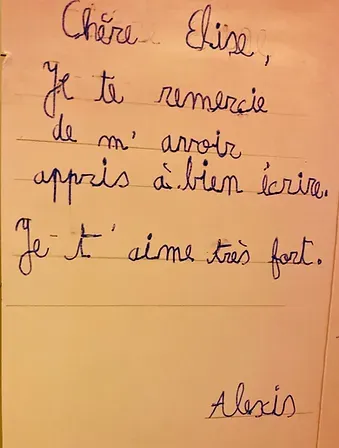 Chère Elise,
Je te remercie
de m' avoir
appris à bien écrire.
Je t' aime très fort.
Alexis